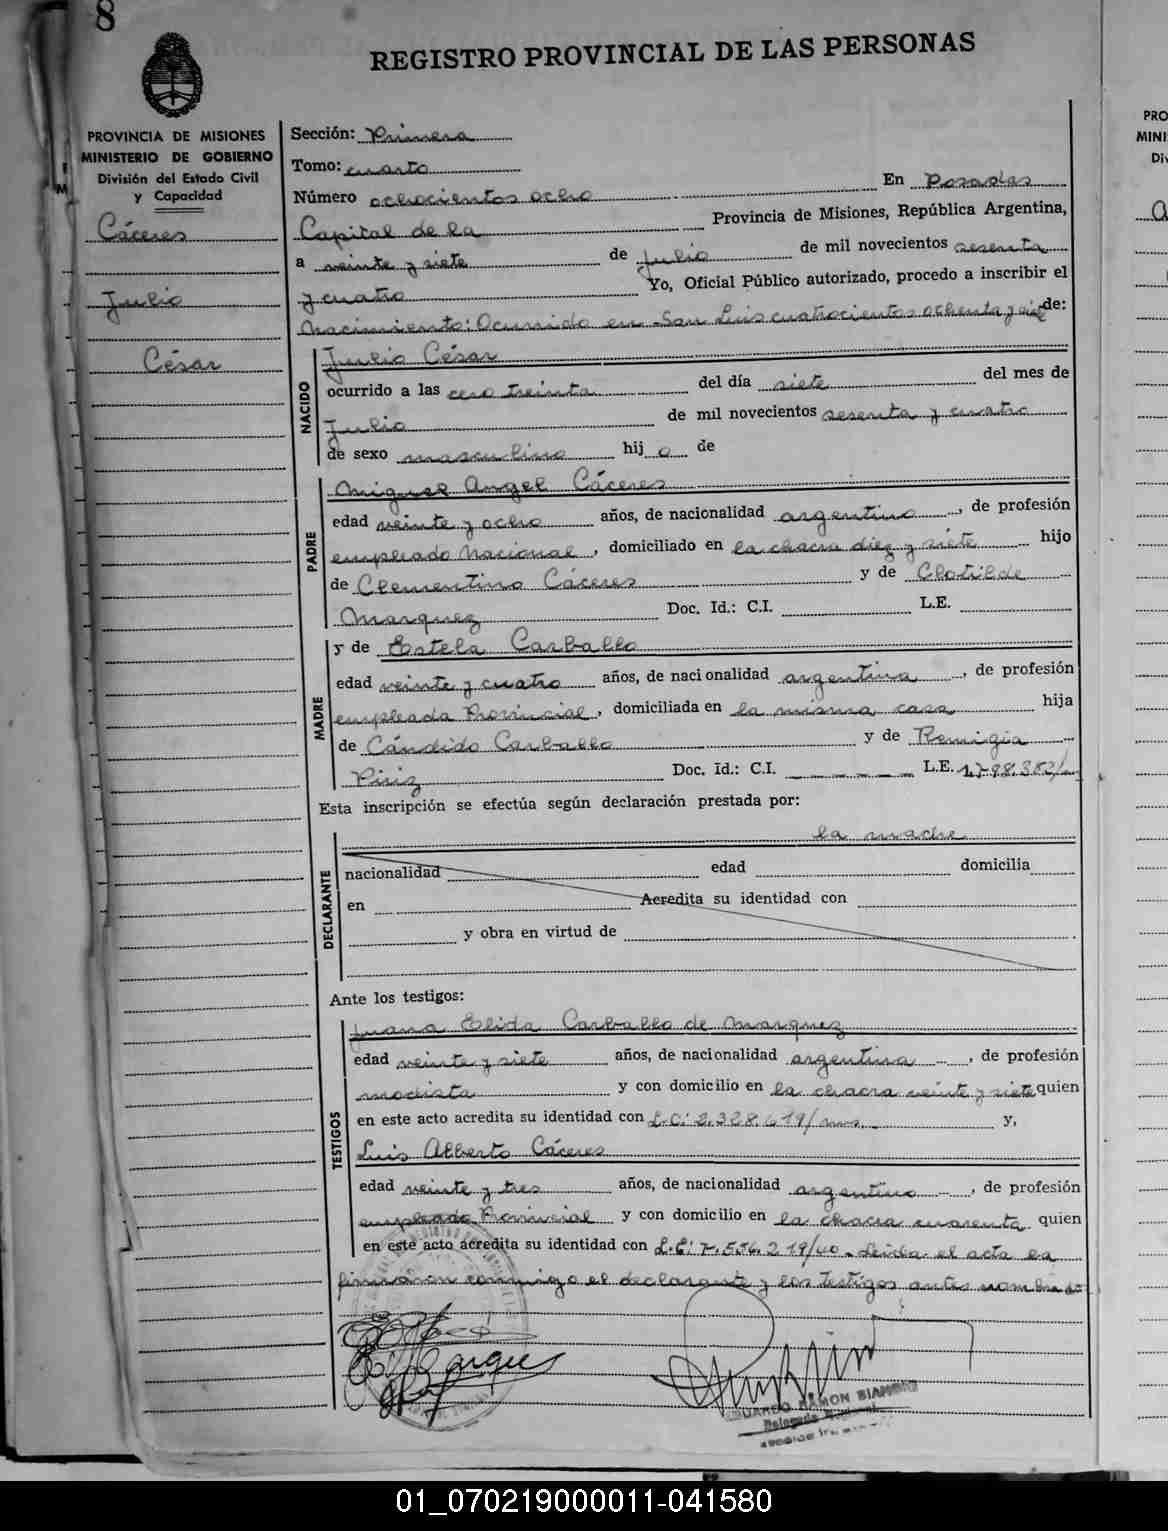 8
REGISTRO PROVINCIAL DE LAS PERSONAS
PROVINCIA DE MISIONES
MINISTERIO DE GOBIERNO
División del Estado Civil
y Capacidad
Cáceres
Julio
César
Sección: Primera
Tomo: cuarto
Número ochocientos ocho En Posadas
Capital de la Provincia de Misiones, República Argentina,
a veinte y siete de Julio de mil novecientos sesenta
y cuatro Yo, Oficial Público autorizado, procedo a inscribir el
Nacimiento: Ocurrido en San Luis cuatrocientos ochenta y siete de:
NACIDO
Julio César
ocurrido a las cero treinta del día siete del mes de
Julio de mil novecientos sesenta y cuatro
de sexo masculino hijo de
PADRE
Miguel Angel Cáceres
edad veinte y ocho años, de nacionalidad argentino, de profesión
empleado Nacional, domiciliado en la chacra diez y siete hijo
de Clementino Cáceres y de Clotilde
Marquez Doc. Id.: C.I. L.E.
MADRE
y de Estela Carballo
edad veinte y cuatro años, de nacionalidad argentina, de profesión
empleada Provincial, domiciliada en la misma casa hija
de Cándido Carballo y de Remigia
Piriz Doc. Id.: C.I. L.E. 1.798.382/
Esta inscripción se efectúa según declaración prestada por:
la madre
DECLARANTE
nacionalidad edad domicilia
en Acredita su identidad con
y obra en virtud de
Ante los testigos:
TESTIGOS
Juana Elida Carballo de Marquez
edad veinte y siete años, de nacionalidad argentina, de profesión
modista y con domicilio en la chacra veinte y siete quien
en este acto acredita su identidad con L.C: 2.328.619/ y,
Luis Alberto Cáceres
edad veinte y tres años, de nacionalidad argentino, de profesión
empleado Provincial y con domicilio en la chacra cuarenta quien
en este acto acredita su identidad con L.E: 7.556.219/60. Leida el acta la
firmaron conmigo el declarante y los testigos antes nombrados
EDUARDO RAMON
Delegado
01_070219000011-041580